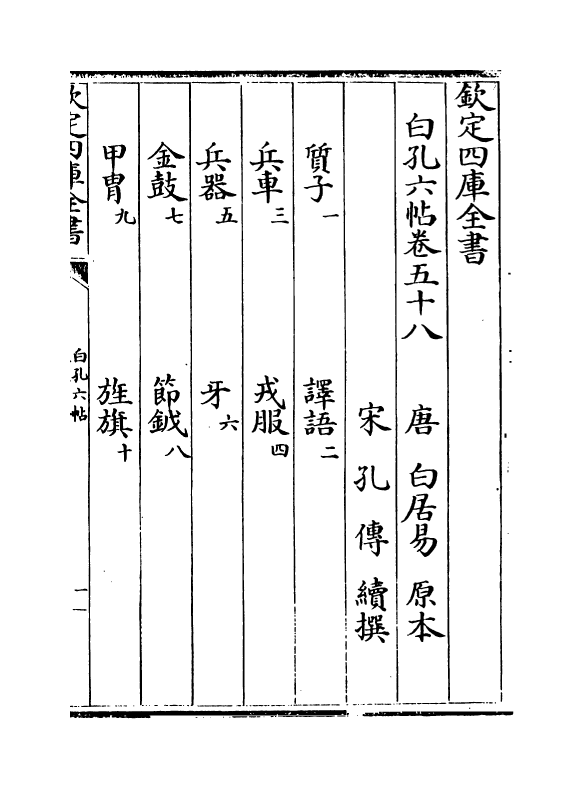 欽定四庫全書
白孔六帖卷五十八 唐 白居易 原本
宋 孔 傳 續撰
質子一 譯語二
兵車三 戎服四
兵器五 牙六
金鼓七 節鉞八
甲冑九 旌旗十
欽定四庫全書 白孔六帖 一